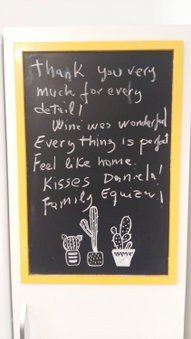 thank you very
much for every
detail!
Wine was wonderful
Every thing is perfect
Feel like home.
Kisses Daniela!
Family